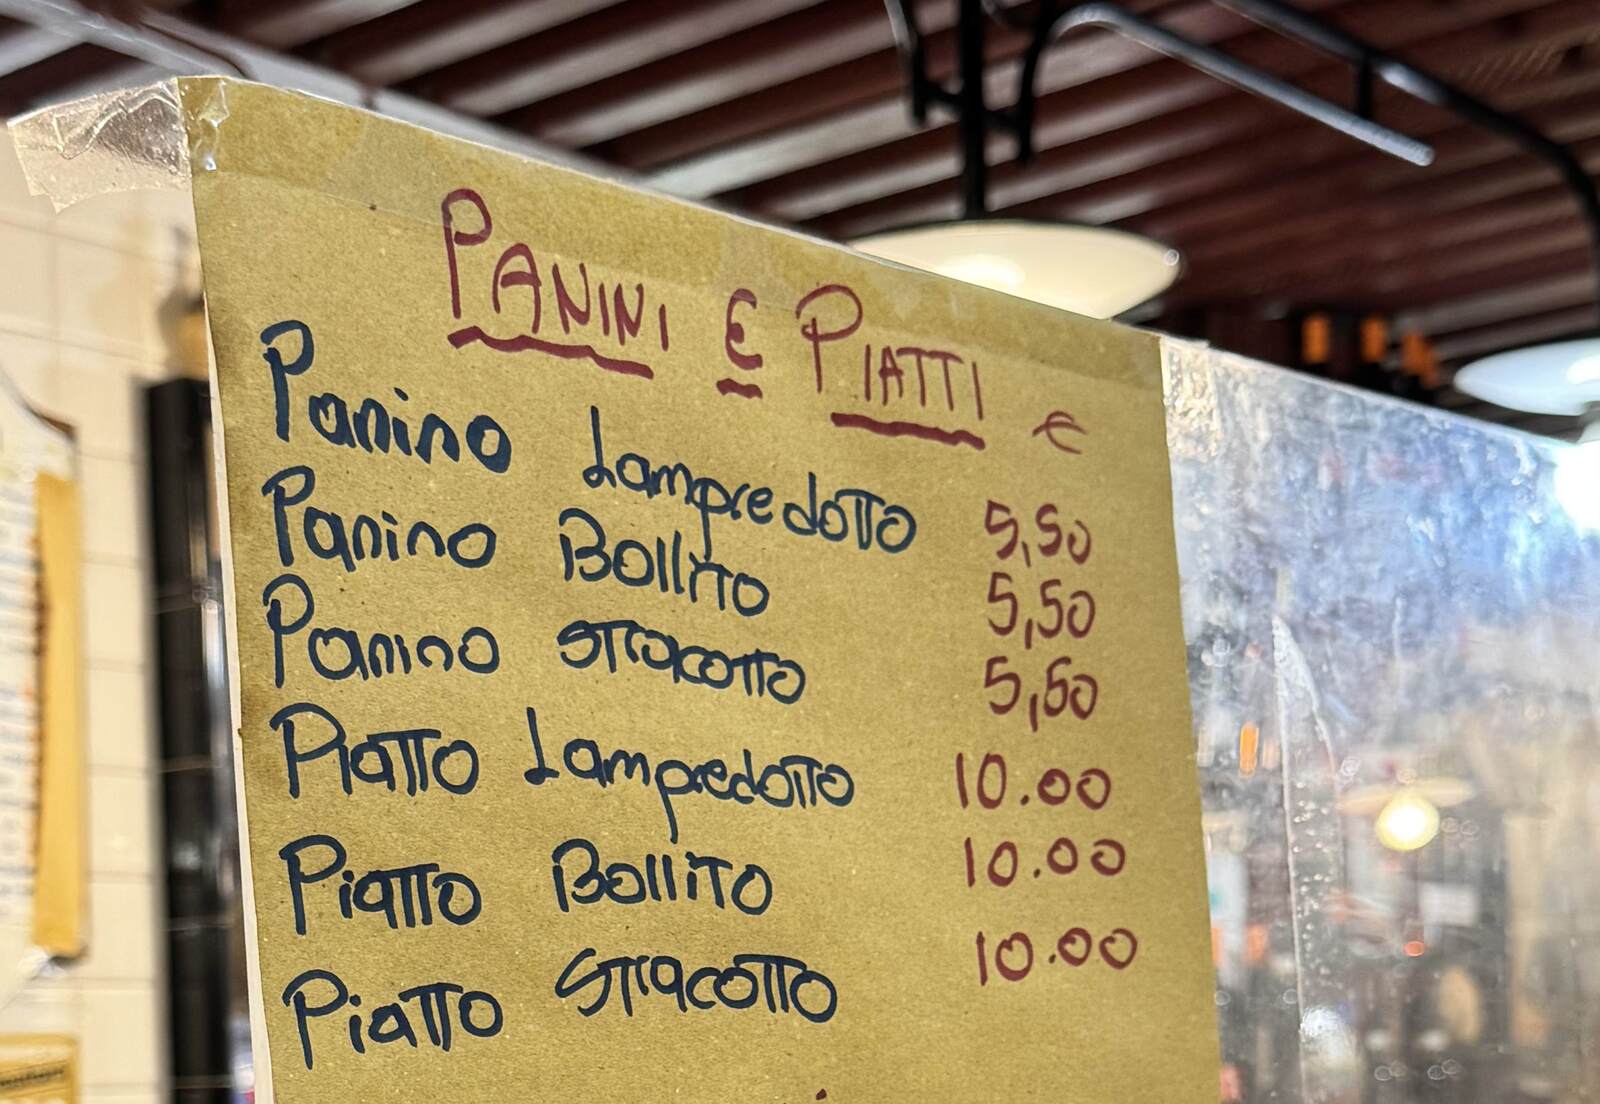 PANINI E PIATTI €
Panino Lampredotto 5,50
Panino Bollito 5,50
Panino Stracotto 5,50
Piatto Lampredotto 10.00
Piatto Bollito 10.00
Piatto Stracotto 10.00